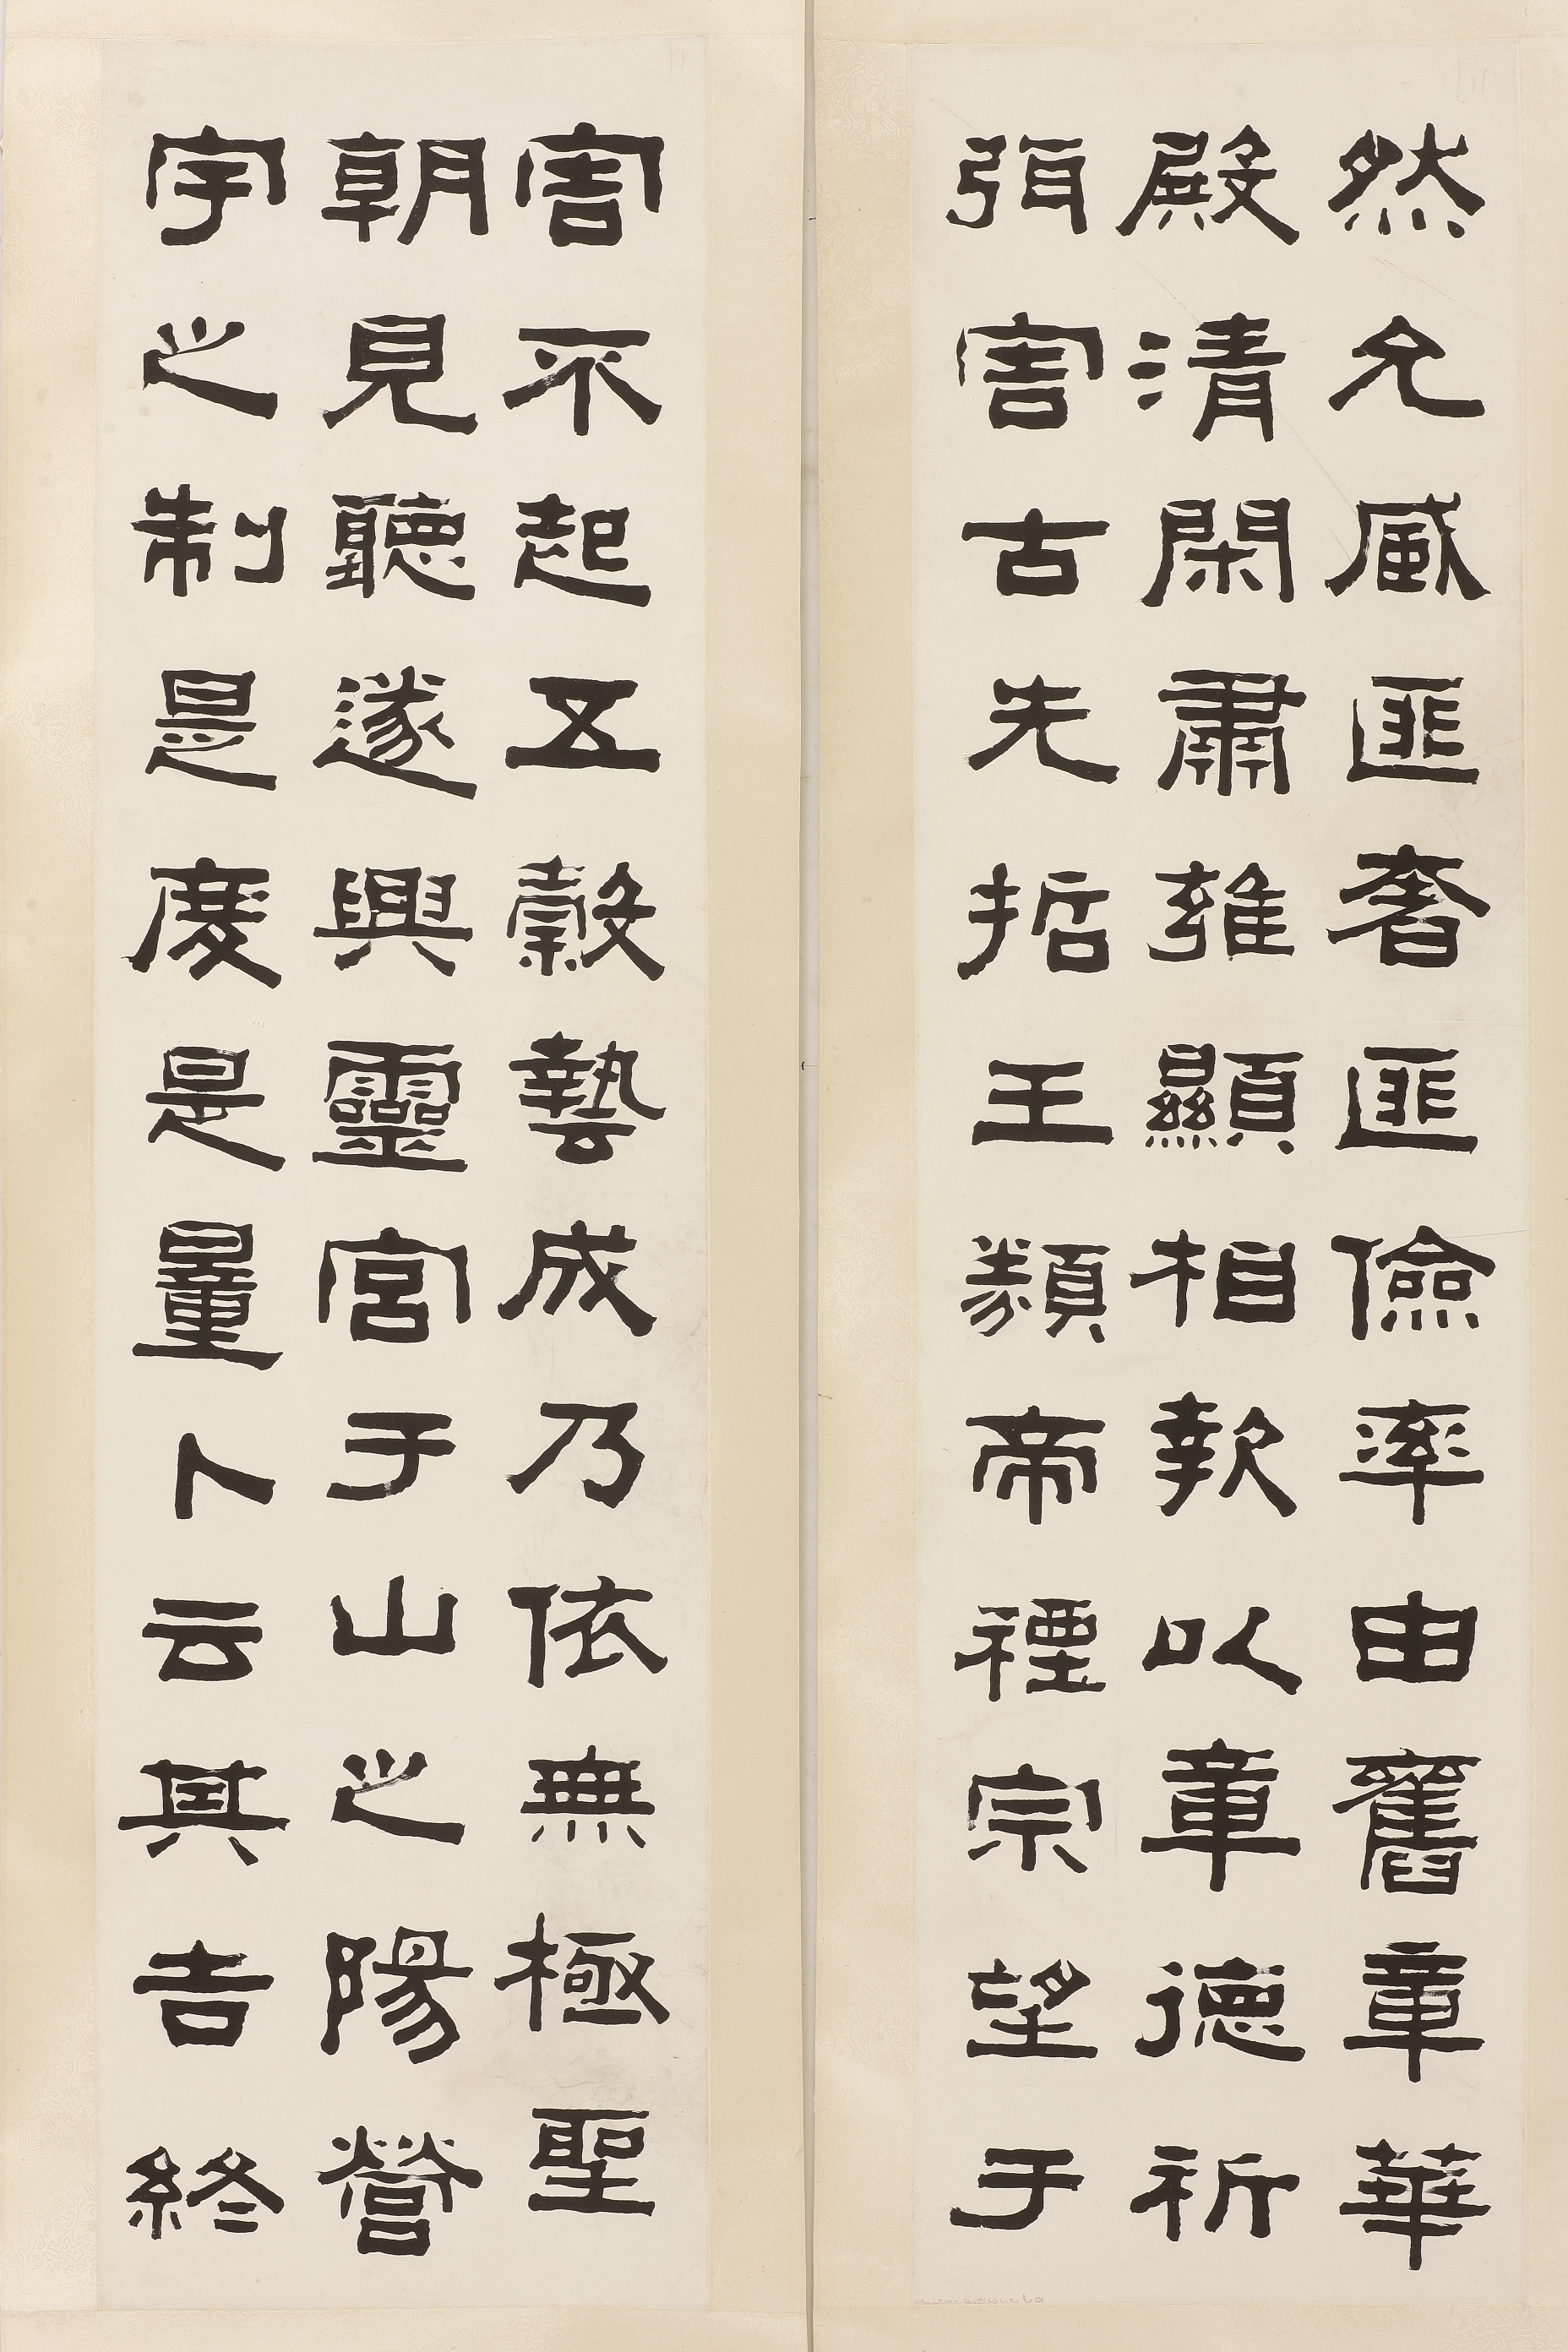 害不起五穀藝成乃依無極聖
朝見聽遂興靈宮于山之陽營
宇之制是度是量卜云其吉終
然允臧匪奢匪儉率由舊章華
殿清閑肅雍顯相款以章德祈
弭害古先哲王類帝禋宗望于